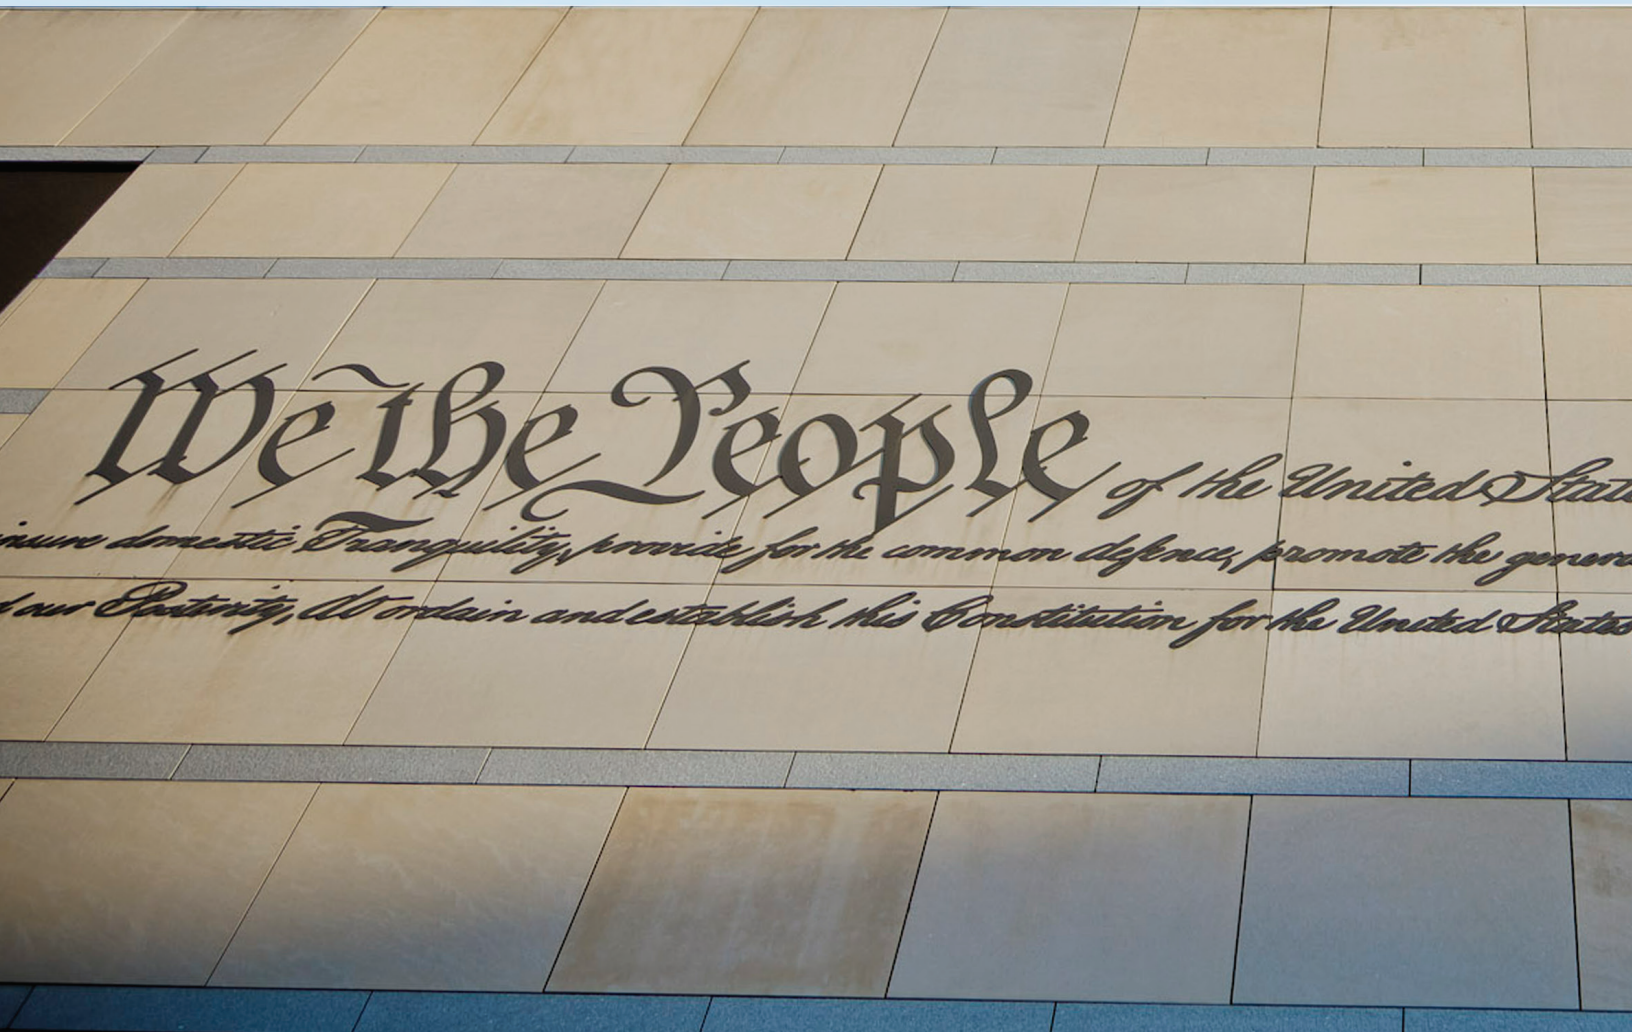 We the People of the United State
insure domestic Tranquility, provide for the common defence, promote the genera
d our Posterity, do ordain and establish this Constitution for the United States